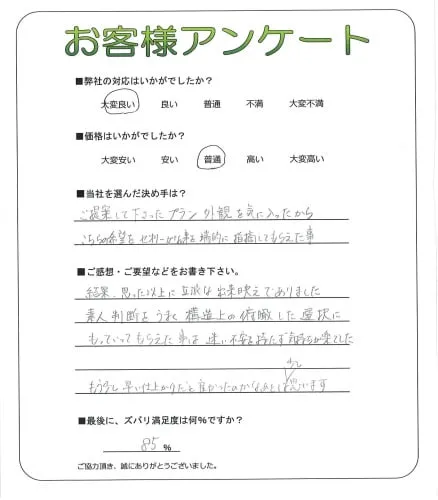 お客様アンケート
■弊社の対応はいかがでしたか？
大変良い 良い 普通 不満 大変不満
■価格はいかがでしたか？
大変安い 安い 普通 高い 大変高い
■当社を選んだ決め手は？
ご提案して下さったプラン 外観を気に入ったから
こちらの希望を 出来を 端的に 指摘してもらえた事
■ご感想・ご要望などをお書き下さい。
結果、思った以上に立派な出来映えでありました
素人判断をうまく構造上の俯瞰した選択に
もっていってもらえた事は 迷い不安を持たず気持ちが楽でした
少し
もう少し早い仕上がりだと良かったのかな と思います
■最後に、ズバリ満足度は何％ですか？
85 %
ご協力頂き、誠にありがとうございました。